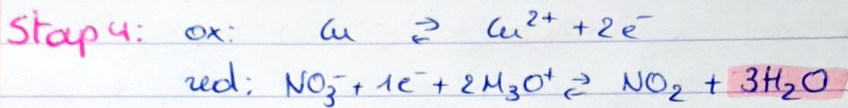 Stap 4: ox: Cu ⇄ Cu²⁺ + 2e⁻
red: NO₃⁻ + 1e⁻ + 2H₃O⁺ ⇄ NO₂ + 3H₂O